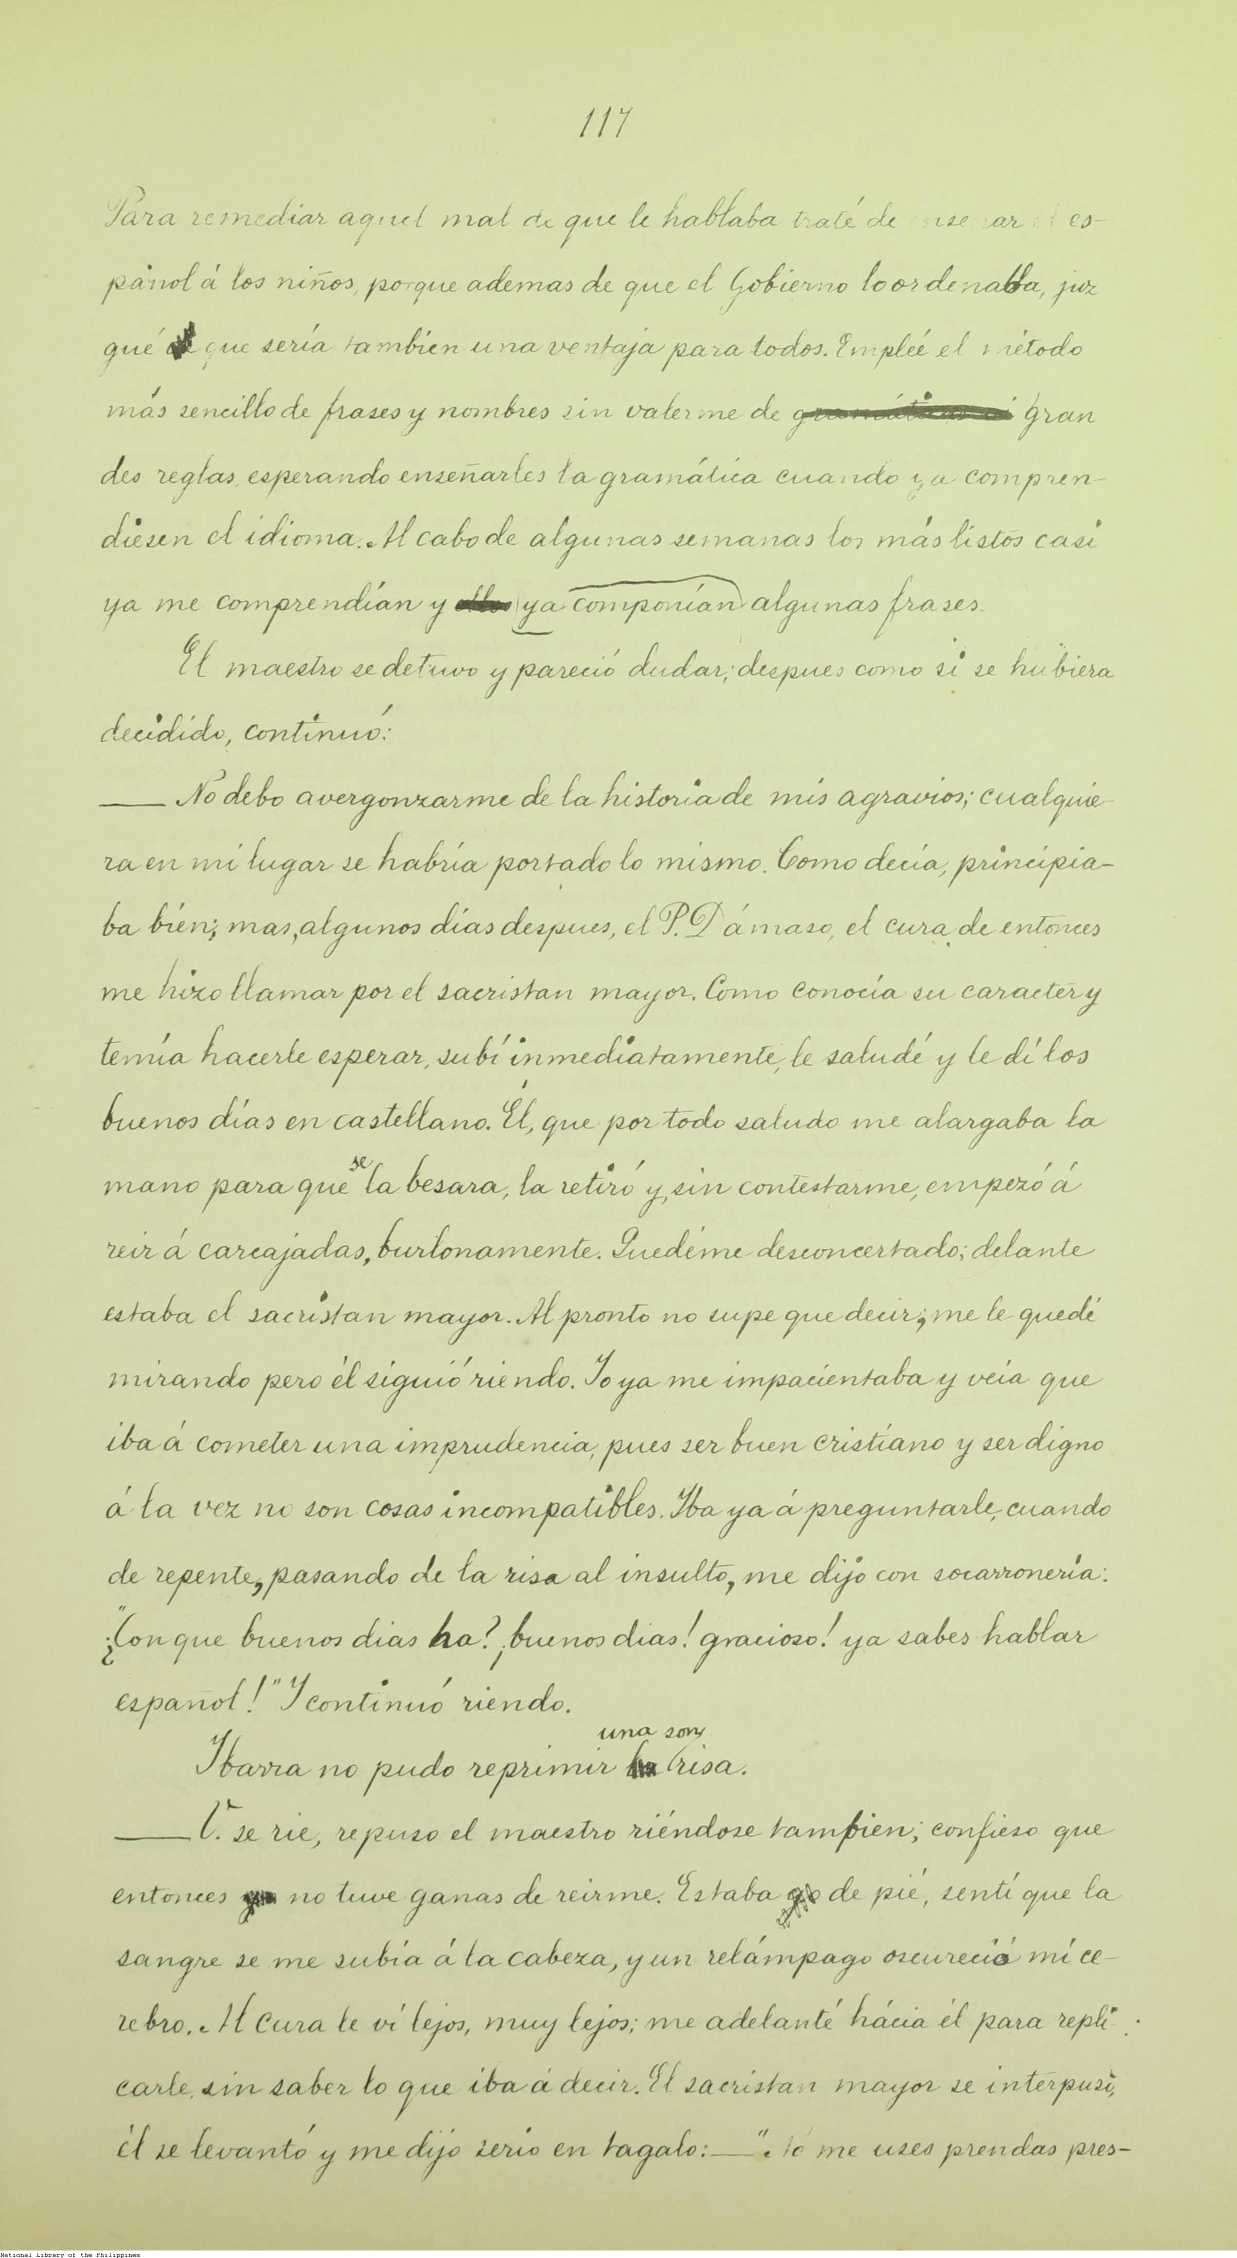 117
Para remediar aquel mal de que le hablaba traté de enseñar el es-
pañol á los niños, porque ademas de que el Gobierno lo ordenaba, juz
gué que sería tambien una ventaja para todos. Empleé el método
más sencillo de frases y nombres sin valerme de gran
des reglas, esperando enseñarles la gramática cuando ya compren-
diesen el idioma. Al cabo de algunas semanas los más listos casi
ya me comprendían y ya componían algunas frases.
El maestro se detuvo y pareció dudar; despues como si se hubiera
decidido, continuó:
— No debo avergonzarme de la historia de mis agravios; cualquie-
ra en mi lugar se habría portado lo mismo. Como decía, principia-
ba bién; mas, algunos días despues, el P. Dámaso, el cura de entonces
me hizo llamar por el sacristan mayor. Como conocía su caracter y
temía hacerle esperar, subí inmediatamente, le saludé y le dí los
buenos días en castellano. Él, que por todo saludo me alargaba la
mano para que se la besara, la retiró y, sin contestarme, empezó á
reir á carcajadas, burlonamente. Quedéme desconcertado; delante
estaba el sacristan mayor. Al pronto no supe que decir; me le quedé
mirando pero él siguió riendo. Yo ya me impacientaba y veía que
iba á cometer una imprudencia, pues ser buen cristiano y ser digno
á la vez no son cosas incompatibles. Iba ya á preguntarle, cuando
de repente, pasando de la risa al insulto, me dijo con socarronería:
"¿Con que buenos dias ha? ¡buenos dias! gracioso! ya sabes hablar
español!" Y continuó riendo.
Ibarra no pudo reprimir una sonrisa.
— V. se rie, repuso el maestro riéndose tambien; confieso que
entonces no tuve ganas de reirme. Estaba de pié, sentí que la
sangre se me subía á la cabeza, y un relámpago oscureció mi ce-
rebro. Al cura le ví lejos, muy lejos; me adelanté hácia él para repli-
carle, sin saber lo que iba á decir. El sacristan mayor se interpuso,
él se levantó y me dijo serio en tagalo: — "No me uses prendas pres-
National Library of the Philippines